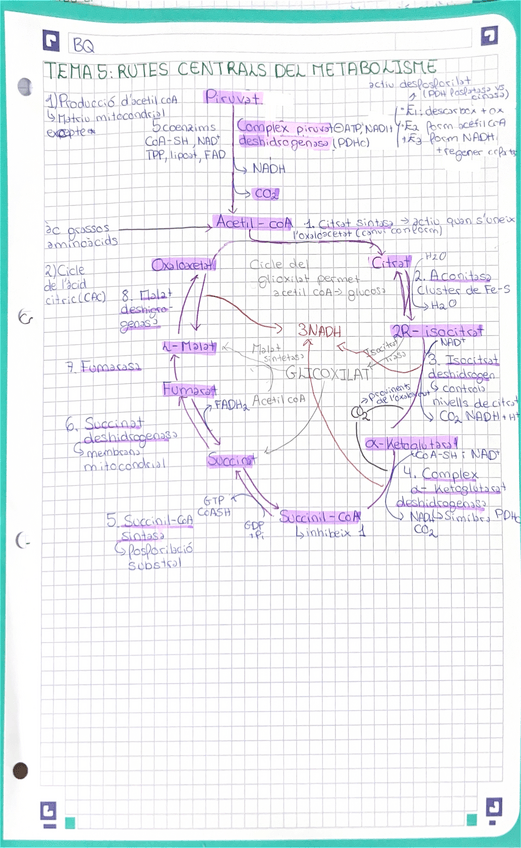 BQ
TEMA 5: RUTES CENTRALS DEL METABOLISME
1) Producció d'acetil CoA
↳ Matriu mitocondrial
excepte
Piruvat
5 coenzims
CoA-SH, NAD⁺
TPP, lipoat, FAD
Complex piruvat
deshidrogenasa (PDHc)
⊖ATP, NADH
actiu desfosforilat
(PDH fosfatasa vs cinasa)
E₁: descarbox + ox
E₂ form acetil CoA
E₃ form NADH
NADH
CO₂
àc grassos
aminoàcids
Acetil-CoA
1. Citrat sintasa → actiu quan s'uneix
l'oxaloacetat (canvi conform)
2) Cicle
de l'àcid
cítric (CAC)
Oxaloacetat
Cicle del
glioxilat permet
acetil CoA → glucosa
Citrat
H₂O
2. Aconitasa
Cluster de Fe-S
H₂O
8. Malat
deshidrogenasa
3NADH
2R-isocitrat
NAD⁺
L-Malat
Malat
sintetasa
Isocitrat
liasa
GLICOXILAT
3. Isocitrat
deshidrogen
↳ control
nivells de citrat
CO₂ NADH + H⁺
7. Fumarasa
Fumarat
FADH₂
Acetil CoA
CO₂
α-Ketoglutarat
CoA-SH i NAD⁺
6. Succinat
deshidrogenasa
↳ membrana
mitocondrial
Succinat
4. Complex
α-Ketoglutarat
deshidrogenasa
NADH
↳ Similar PDHc
CO₂
GTP
CoASH
GDP
+Pi
Succinil-CoA
↳ inhibeix 1
5. Succinil-CoA
sintasa
↳ fosforilació
substrat